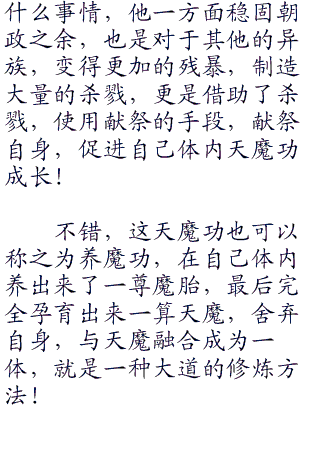 什么事情，他一方面稳固朝
政之余，也是对于其他的异
族，变得更加的残暴，制造
大量的杀戮，更是借助了杀
戮，使用献祭的手段，献祭
自身，促进自己体内天魔功
成长！
不错，这天魔功也可以
称之为养魔功，在自己体内
养出来了一尊魔胎，最后完
全孕育出来一算天魔，舍弃
自身，与天魔融合成为一
体，就是一种大道的修炼方
法！